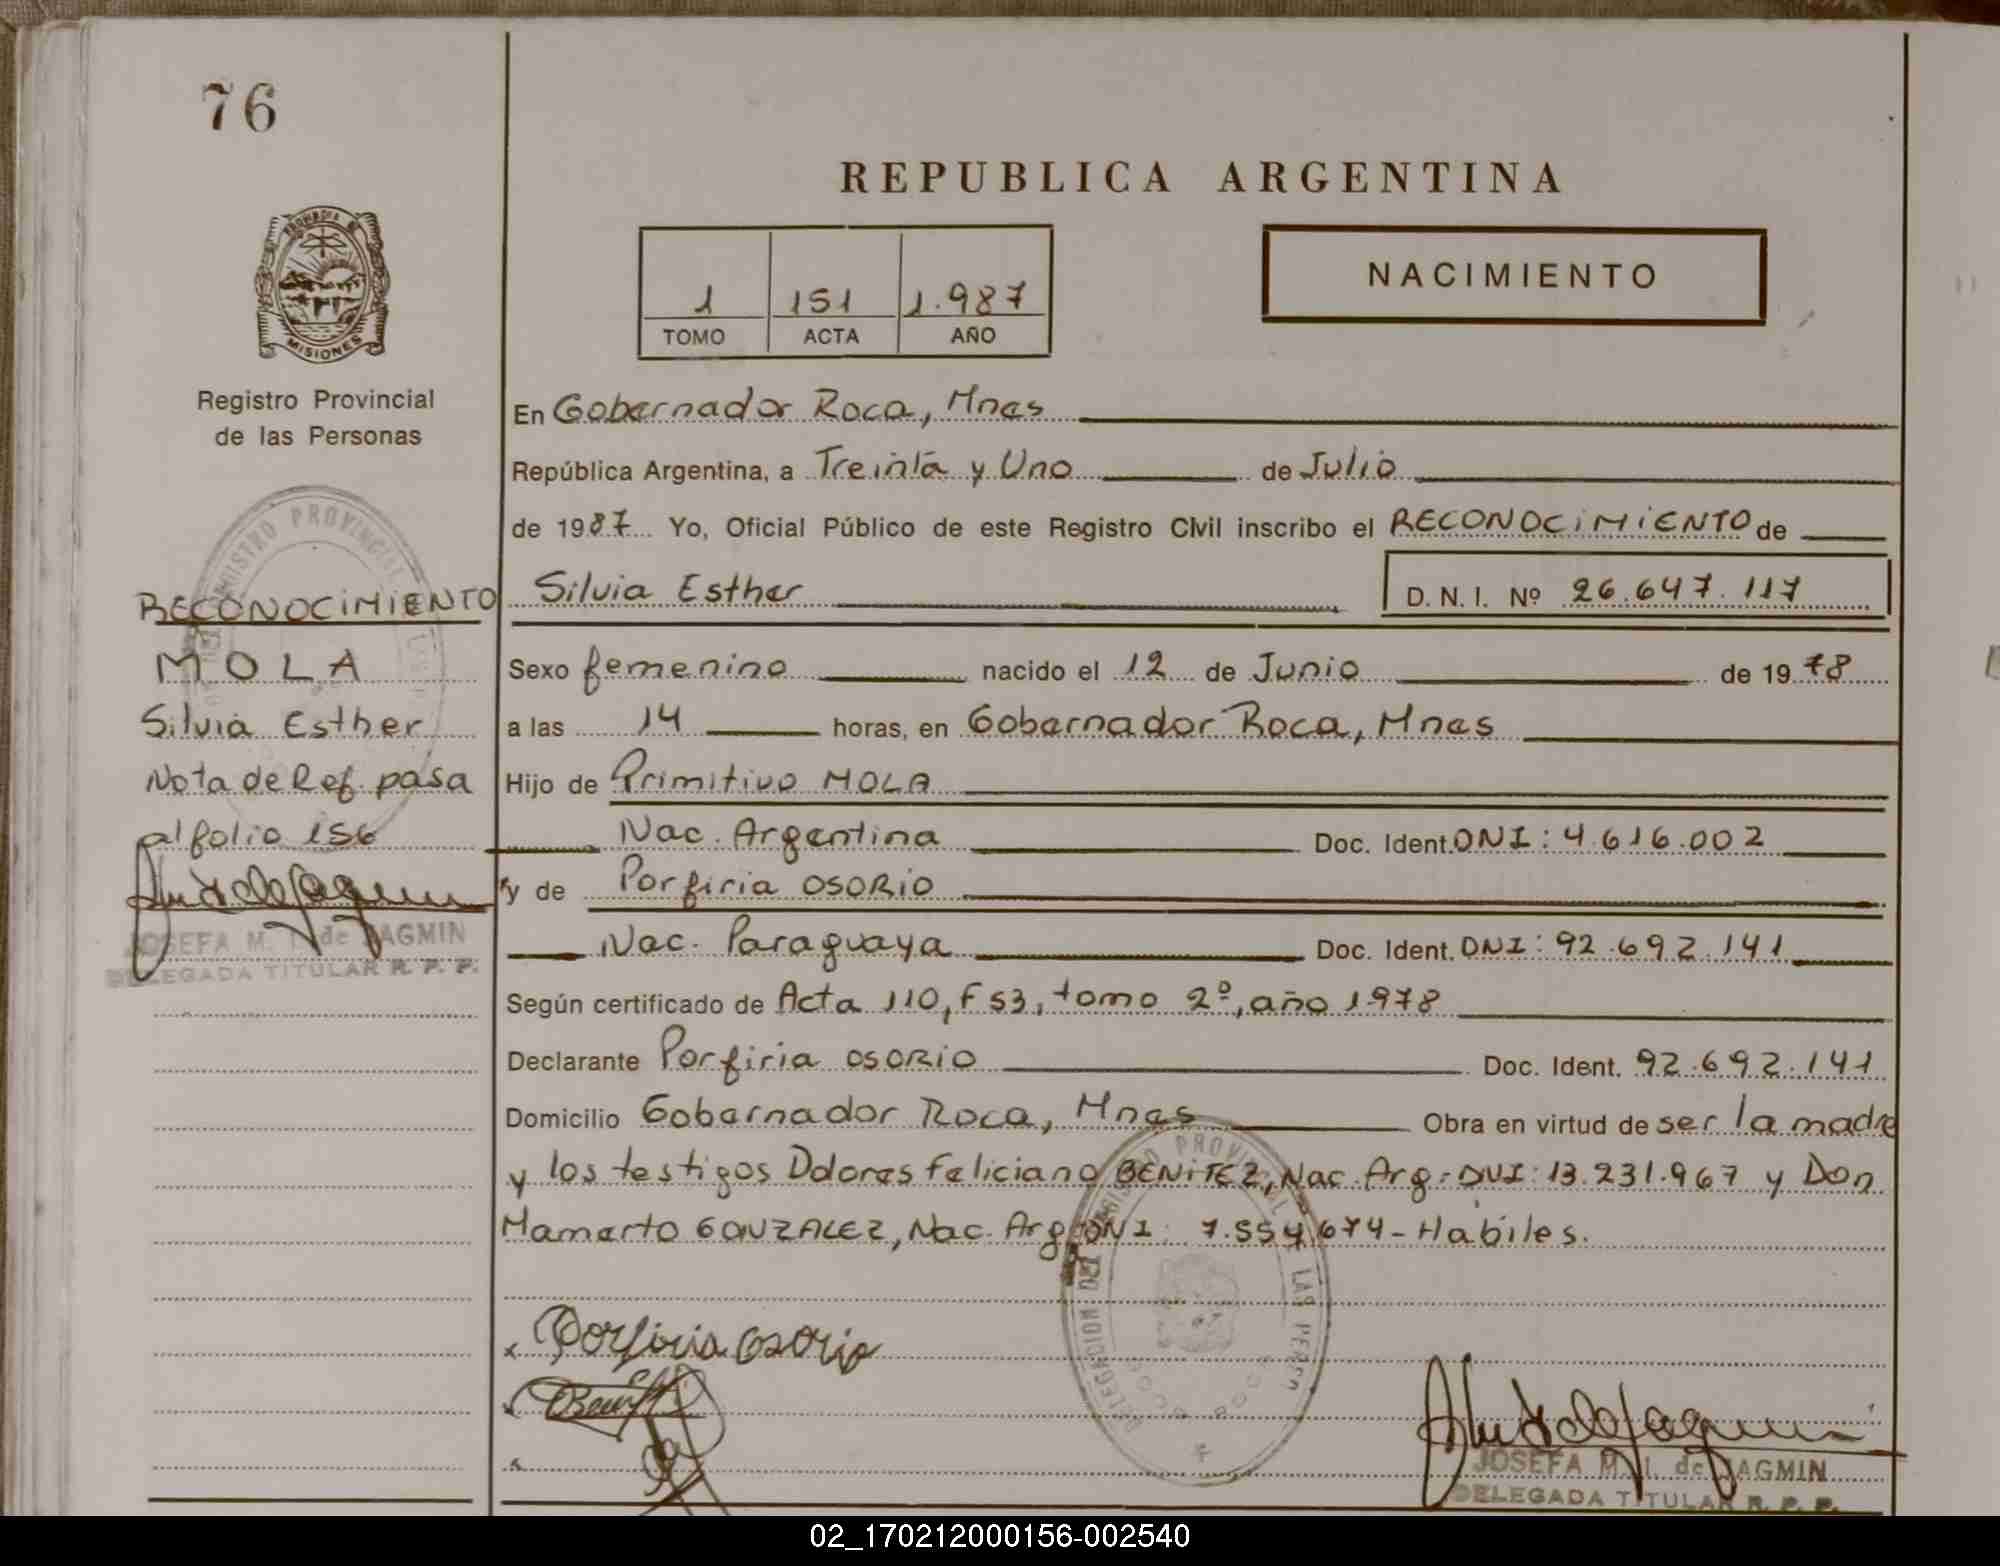 76
REPUBLICA ARGENTINA
PROVINCIA DE
MISIONES
1 151 1.987
TOMO ACTA AÑO
NACIMIENTO
Registro Provincial
de las Personas
En Gobernador Roca, Mnes
República Argentina, a Treinta y Uno de Julio
de 1987 Yo, Oficial Público de este Registro Civil inscribo el RECONOCIMIENTO de
Silvia Esther D. N. I. Nº 26.647.117
Sexo femenino nacido el 12 de Junio de 1978
a las 14 horas, en Gobernador Roca, Mnes
Hijo de Primitivo MOLA
Nac. Argentina Doc. Ident. DNI: 4.616.002
y de Porfiria OSORIO
Nac. Paraguaya Doc. Ident. DNI: 92.692.141
Según certificado de Acta 110, F 53, tomo 2º, año 1978
Declarante Porfiria OSORIO Doc. Ident. 92.692.141
Domicilio Gobernador Roca, Mnes Obra en virtud de ser la madre
y los testigos Dolores Feliciano BENITEZ, Nac. Arg. DNI: 13.231.967 y Don
Mamerto GONZALEZ, Nac. Arg DNI: 7.554.674 - Habiles.
x Porfiria Osorio
JOSEFA M. I. de JAGMIN
DELEGADA TITULAR R. P. P.
RECONOCIMIENTO
MOLA
Silvia Esther
Nota de Ref. pasa
al folio 156
JOSEFA M. I. de JAGMIN
DELEGADA TITULAR R. P. P.
02_170212000156-002540